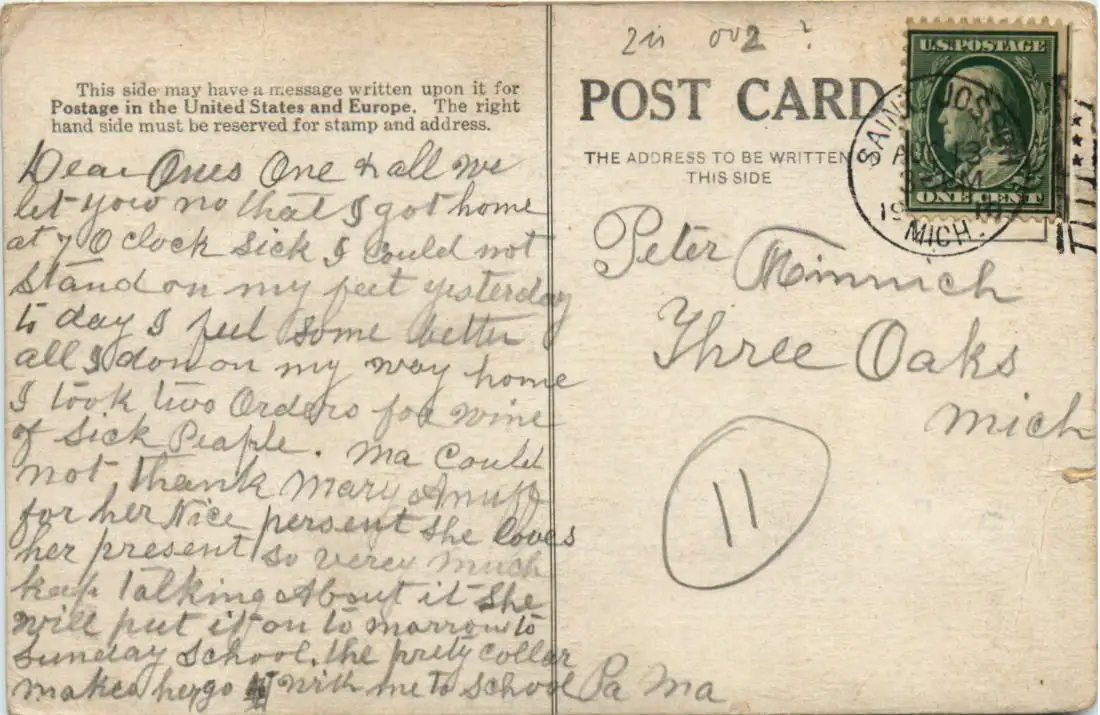 2in 002 ?
This side may have a message written upon it for
Postage in the United States and Europe. The right
hand side must be reserved for stamp and address.
POST CARD
THE ADDRESS TO BE WRITTEN
THIS SIDE
U.S. POSTAGE
ONE CENT
SAINT JOSEPH
AUG 13
M
19
MICH.
Dear Ones One & all we
let yow no that I got home
at 7 O clock sick I could not
stand on my feet yesterday
to day I feel some better
all I don on my way home
I took two Orders for wine
of Sick Peaple. Ma Could
not thank Mary Anuff
for her Nice persent she loves
her present so verey much
keep talking About it She
will put it on to morrow to
Sunday School. the prety collar
makes her go with me to School Pa Ma
Peter
Three Oaks
Mich
11